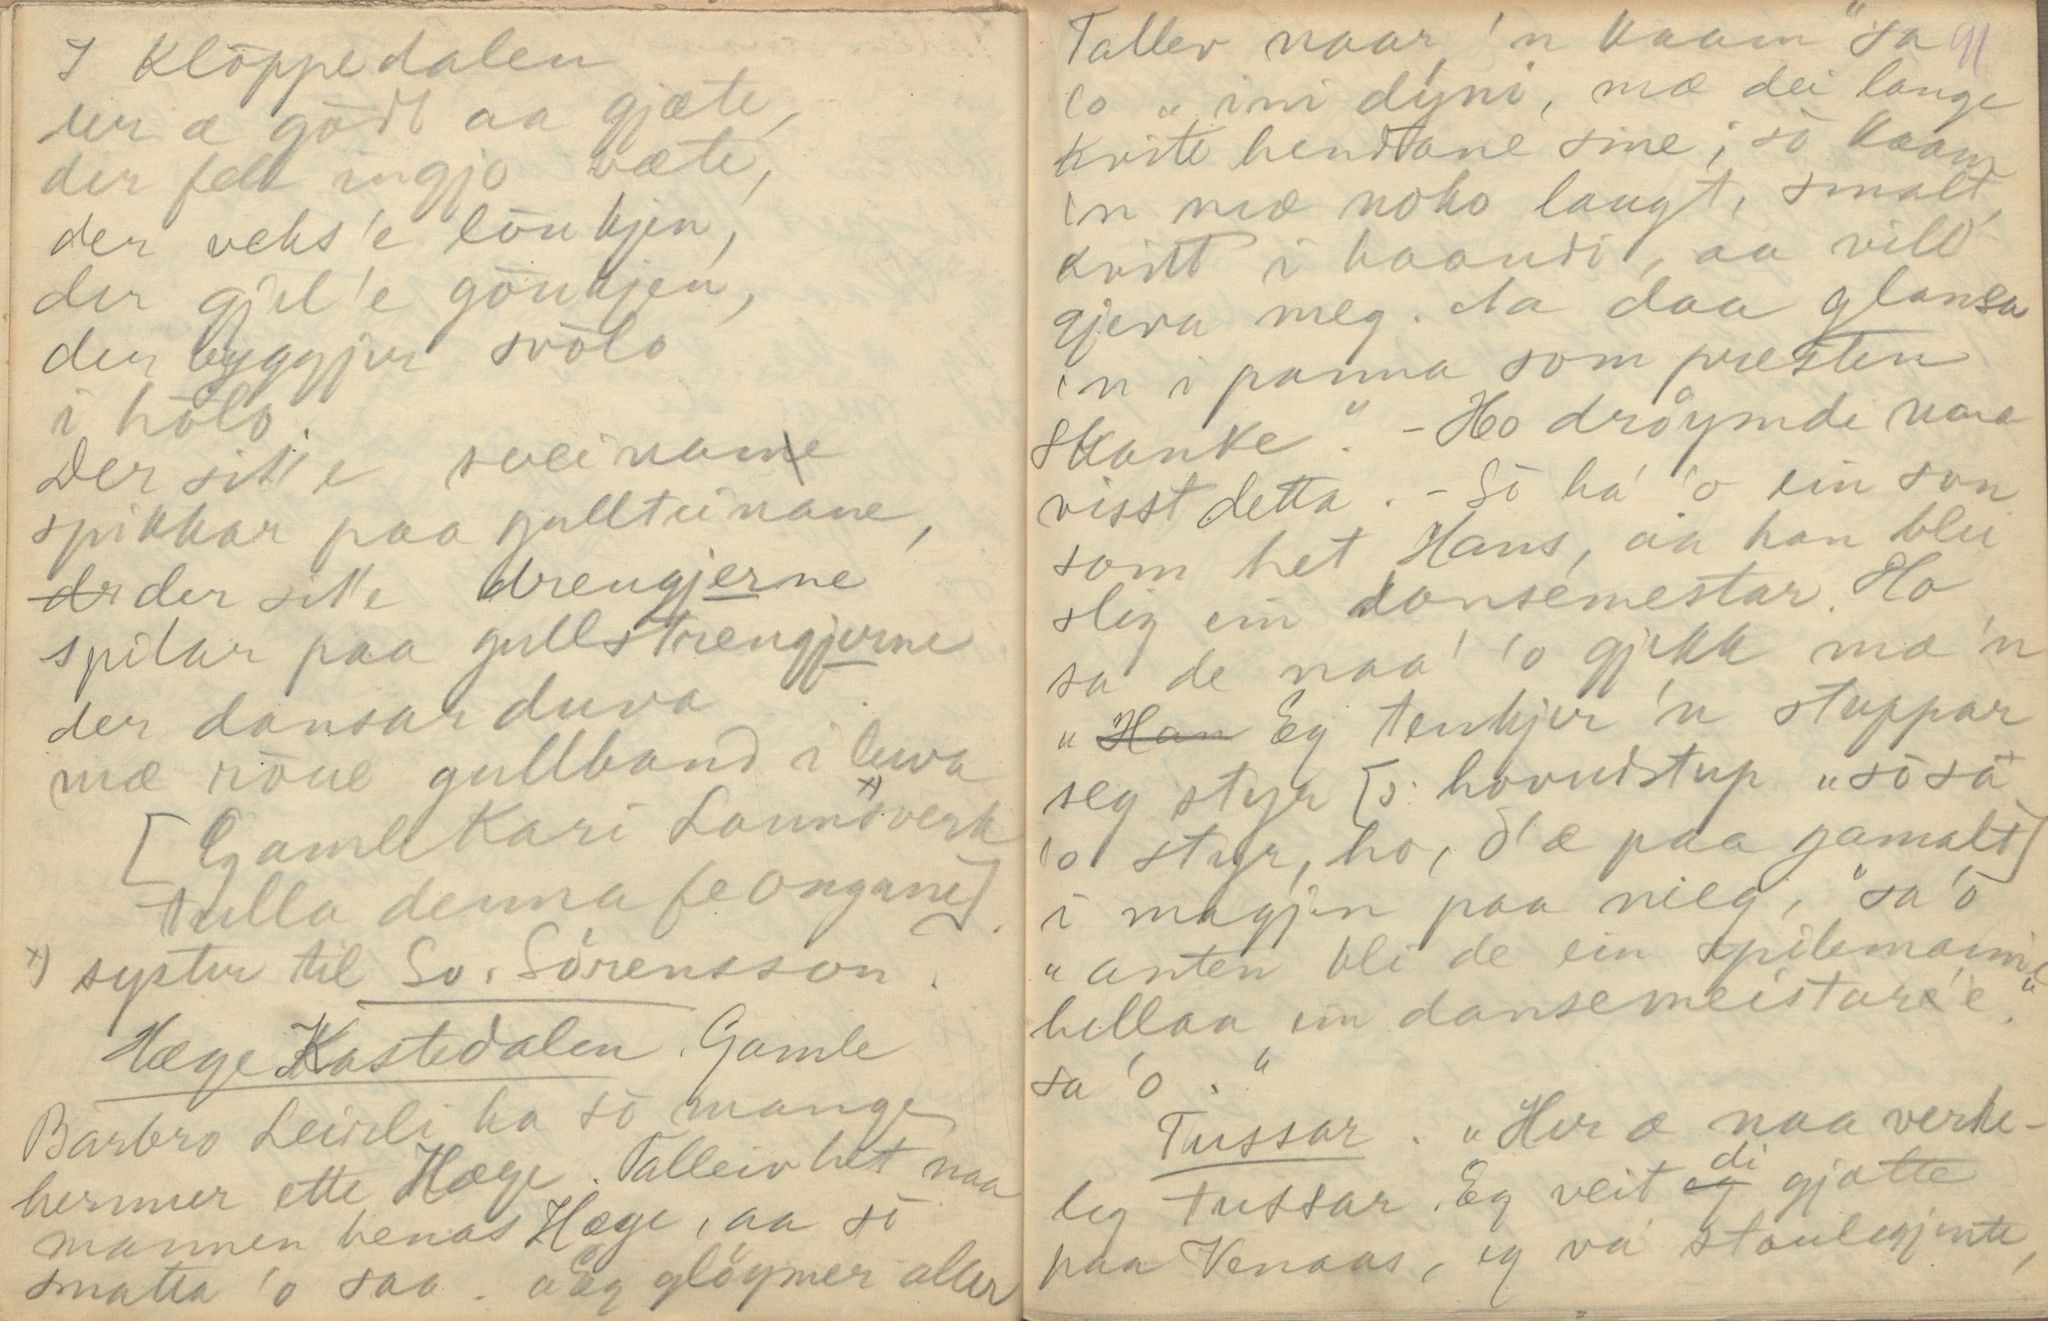 I Klöppedalen
der æ gödt aa gjæte,
der fell ingjo væte,
der veks'e löukjen,
der gjel'e göukjen,
der byggjer svölo
i hölo.
Der sit'e sveinane
spikkar paa gullteinane,
der sit'e drengjerne
spilar paa gullstrengjerne
der dansar duva
mæ röue gullband i luva
[Gamle Kari Launsverk x)
tulla denna fe ongane].
x) syster til So. Sörensson.
Hæge Kastedalen. Gamle
Barbro Leirli ha so mange
hermer ette Hæge. Talleiv het naa
mannen henas Hæge, aa so
smatta 'o saa. "Eg glöymer aller
91
Tallev naar 'n kaam" sa
'o "ini dyni, mæ dei lange
kvite hendane sine; so kaam
'n mæ noko langt, smalt,
kvitt i haandi, aa vild'
gjeva meg. Aa daa glansa
'n i panna som presten
Skanke". - Ho dröymde nara
visst detta. - So ha' 'o ein son
som het Hans, aa han blei
slig ein dansemestar. Ho
sa de naa' 'o gjekk mæ 'n
"Han Eg tenkjer 'n stuppar
seg styr [ɔ: hovudstup "so sa
'o styr, ho, d'æ paa gamalt]
i magjen paa mieg," sa 'o
"anten bli de ein spilemann
hellaa ein dansemeistar'e."
sa 'o."
Tussar. "Her æ naa verke-
leg tussar. Eg veit di gjætte
paa Venaas, eg va' stoulegjente,